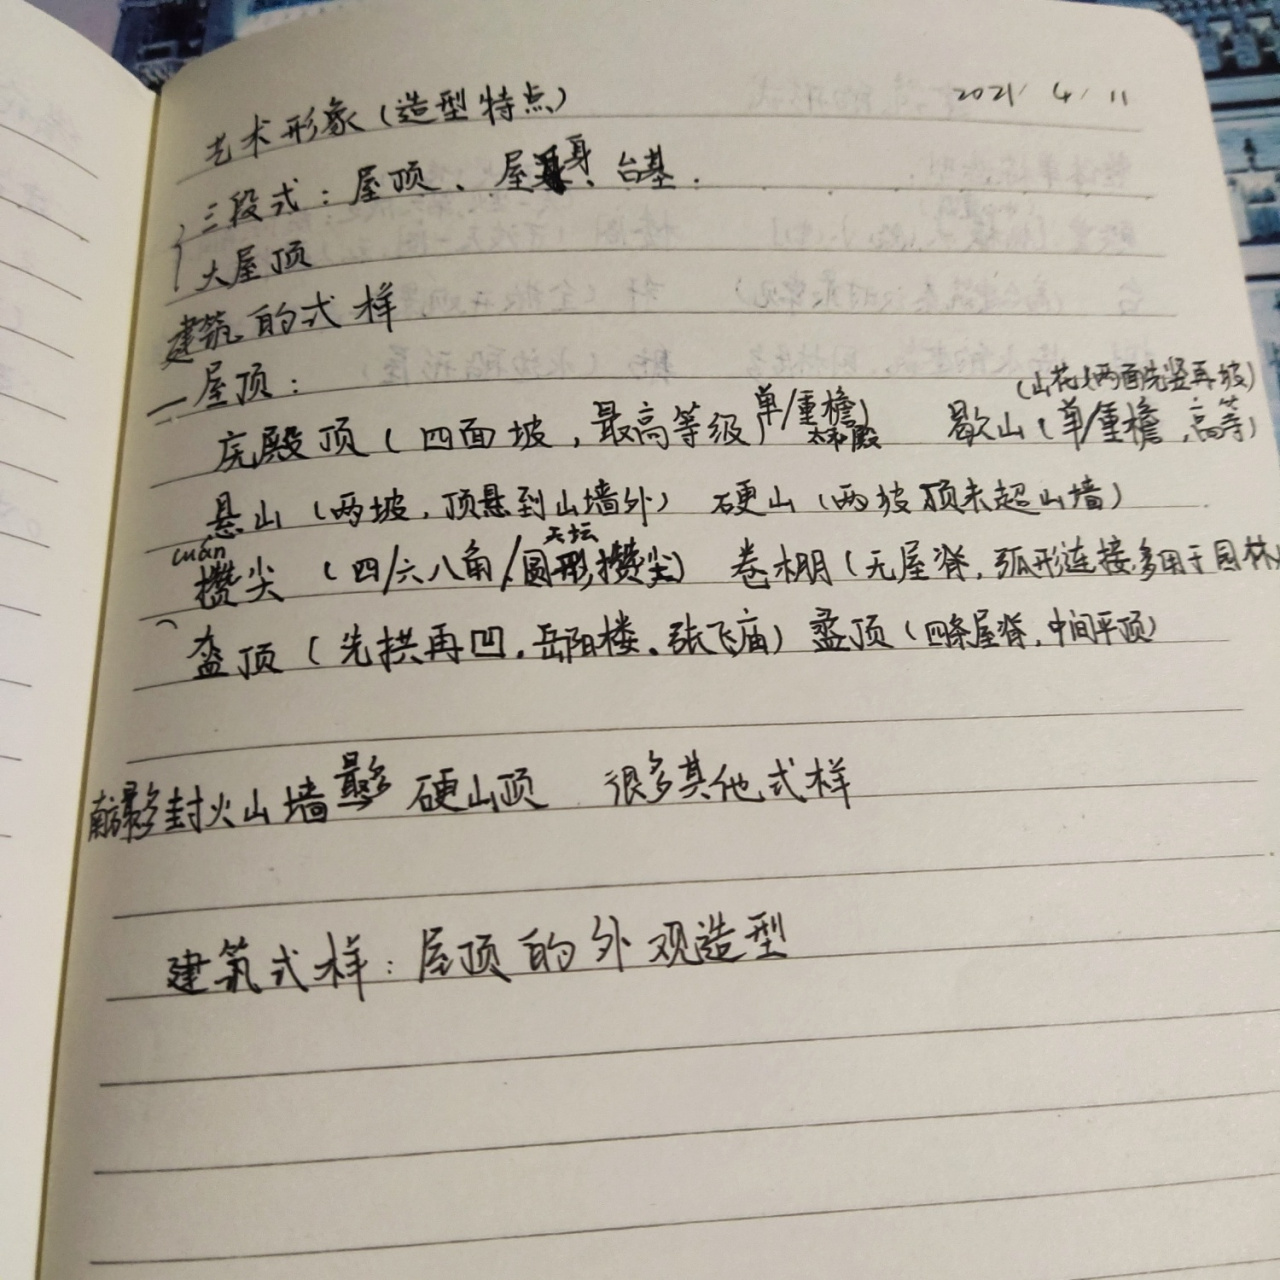 艺术形象(造型特点) 2021 4 11
三段式：屋顶、屋身、台基.
大屋顶
建筑的式样
一屋顶：
(山花、两面先竖再坡)
庑殿顶(四面坡,最高等级,单/重檐) 太和殿 歇山(单/重檐,高等)
悬山(两坡,顶悬到山墙外) 硬山(两坡顶未超山墙)
cuán 天坛
攒尖(四/六八角/圆形攒尖) 卷棚(无屋脊,弧形连接,多用于园林)
盔顶(先拱再凹,岳阳楼、张飞庙) 盝顶(四条屋脊,中间平顶)
南方最多封火山墙 最多 硬山顶 很多其他式样
建筑式样：屋顶的外观造型